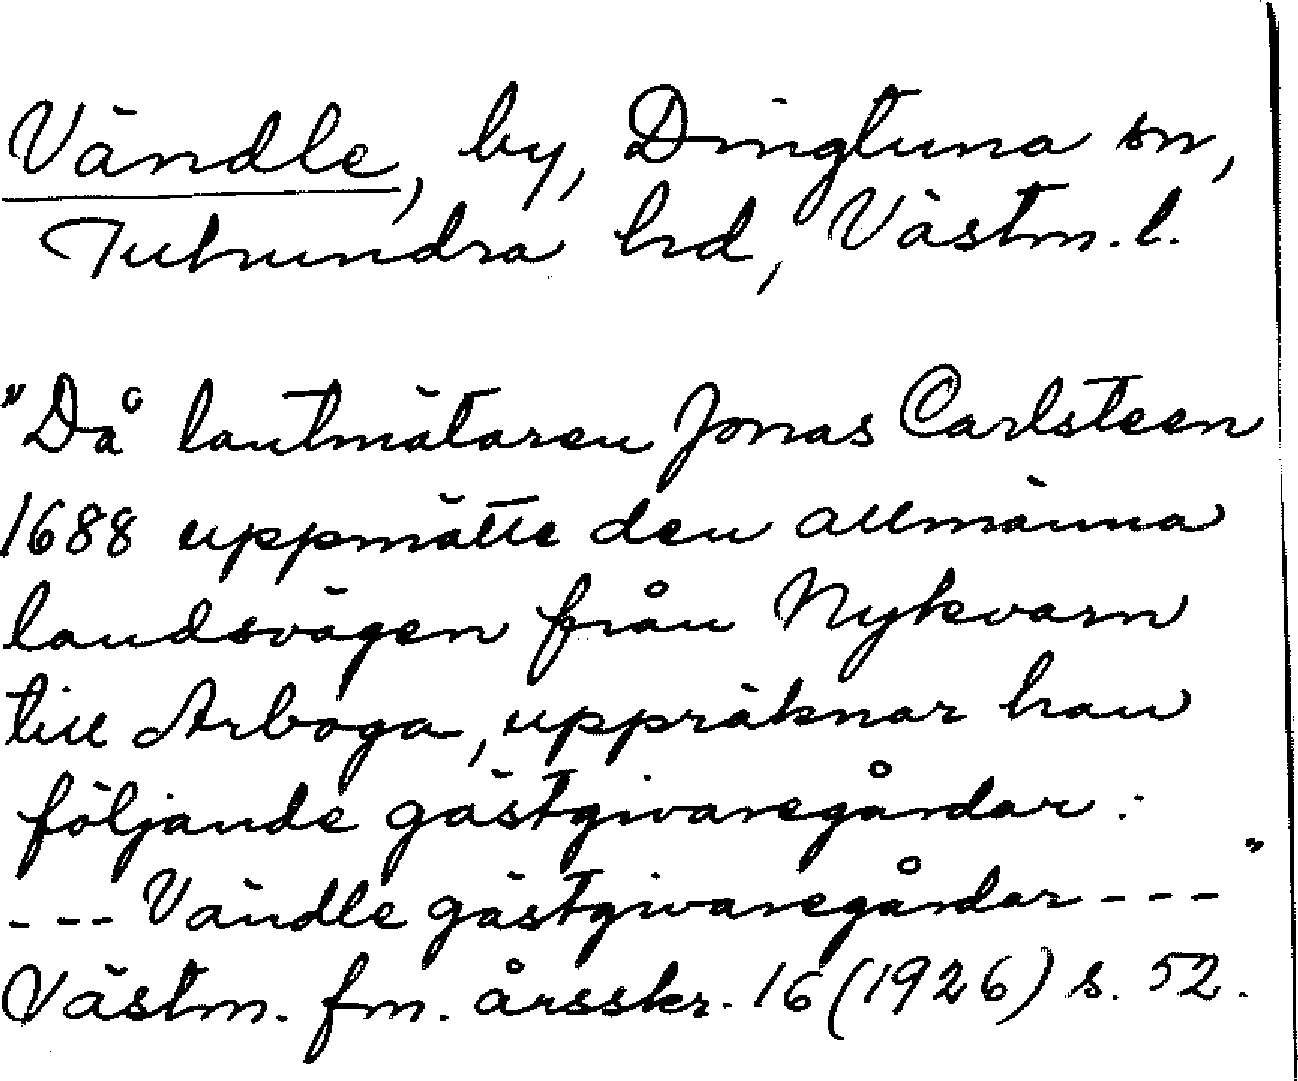 Vändle, by, Dingtuna sn,
Tuhundra hd, Västm. l.
"Då lantmätaren Jonas Carlsteen
1688 uppmätte den allmänna
landsvägen från Nykvarn
till Arboga, uppräknar han
följande gästgivaregårdar:
--- Vändle gästgivaregårdar ---"
Västm. fm. årsskr. 16 (1926) s. 52.